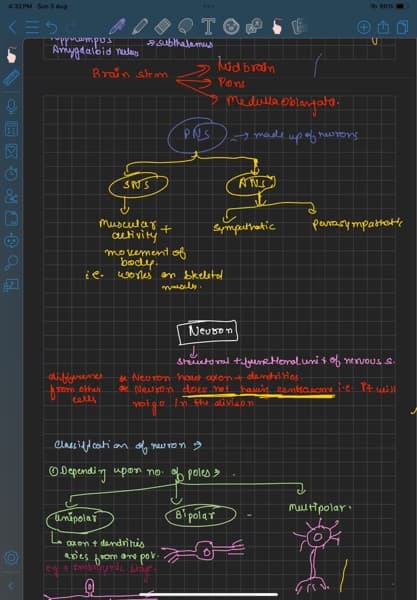 4:33 PM Sun 3 Aug
Amygdaloid nules
→ subthalamus
Brain stem
Midbrain
Pons
Medulla oblongata.
PNS → made up of neurons
SNS
ANS
Muscular +
activity
movement of
body.
i.e. works on skeletal
Sympathetic
parasympathetic
Neuron
structural + functional unit of nervous s.
difference
from other
cells
* Neuron have axon + dendrities.
* Neuron does not havin centrosome i.e. It will
not go in the division
Classification of neuron →
① Depending upon no. of poles →
Unipolar
Bipolar
Multipolar.
axon + dendrities
aries from one pol.